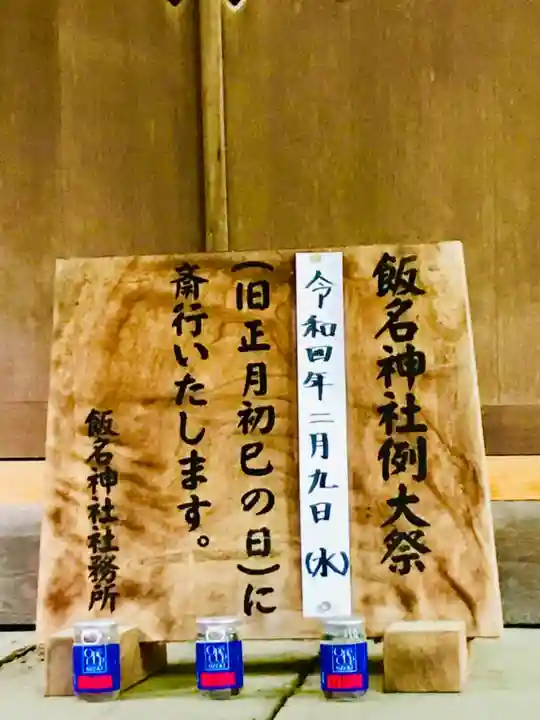 飯名神社例大祭
令和四年二月九日(水)
(旧正月初巳の日)に
斎行いたします。
飯名神社社務所
One
CUP
OZEKI
One
CUP
OZEKI
One
CUP
OZEKI